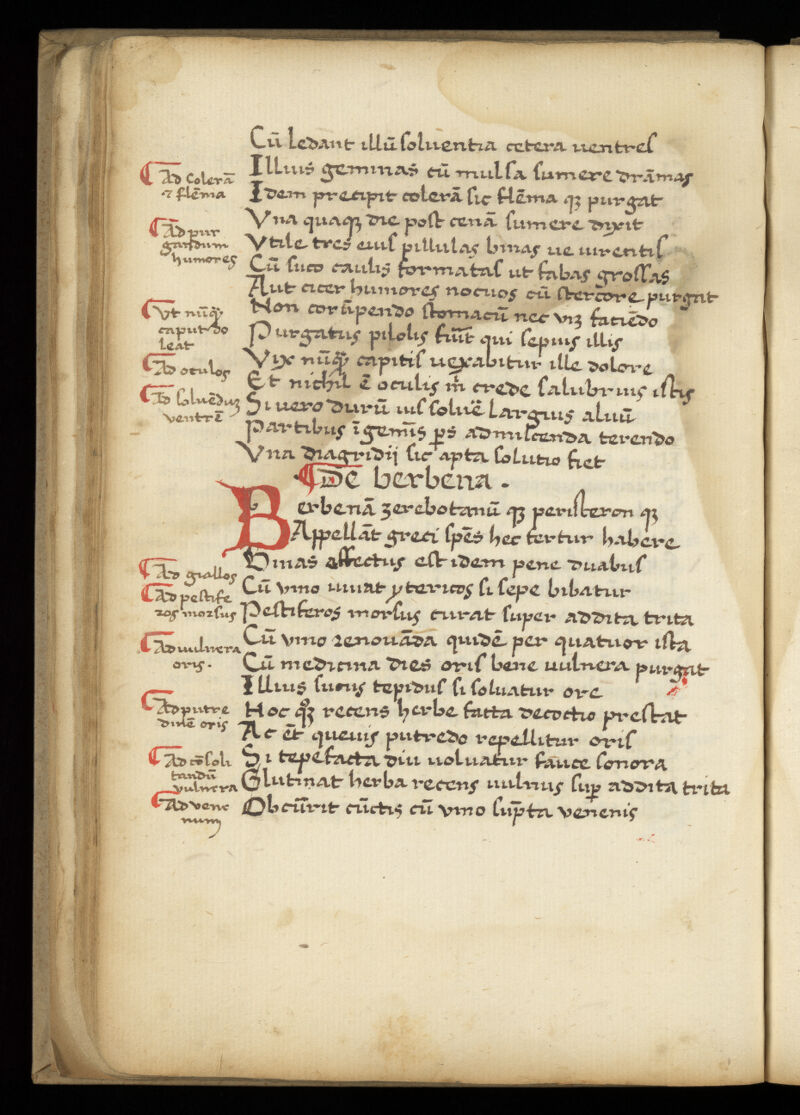 Cū ledant illū soluentia cetera uentres
Illius geminas cū mulsa sumere drāmas
Idem precipit colerā sic flēma qꝫ purgat
Vna quaqꝫ die post cenā sumere dixit
Vtile tres eius pillulas binas ue uirentis
Cū suco caulis formatas ut fabas grossas
Aut cicer humores nocuos cū stercore purgat
Non corūpendo stomacū nec viꝫ faciēdo
Purgatus pilolis fiūt qui sepius illis
Vix nūqꝫ capitis uexabitur ille dolore
Et nichil ē oculis m̄ crede salubrius istis
Si uero durū ius soluē largius aluū
Partibus īgemīs ꝑs admiscenda terendo
Vna diagridij sic apta solutio fiet
De berbena.
Berbenā ʒerebotanū qꝫ peristeron qꝫ
Appellāt greci spēs hec fertur habere
Vinas affectus est idem pene duabus
Cū vino iuuat yctericos si sepe bibatur
Pestiferos morsus curat super addita trita
Cū vino renouāda quidē per quatuor ista
Cū medicina dies oris bene uulnera purgat
Illius sucus tepidus si soluatur ore
Hoc qꝫ recens herbe facta decoctio prestat
Ac ēt queuis putredo repellitur oris
Si tepefacta diu uoluatur fauce sonora
Glutinat herba recens uulnus suꝑ addita trita
Obcūrit cūctis cū vino sūpta venenis
Ad Colerā
⁊ flēma
Ad pur
gandum
humores
Vt nūqꝫ
caput do
leat
Ad oculos
Ad soluēduꝫ
ventrē
Ad giallos
Ad pestife
ros morsus
Ad uulnera
oris.
Ad putre
dinē oris
Ad cōsoli
tandū
vulnera
Ad vene
num